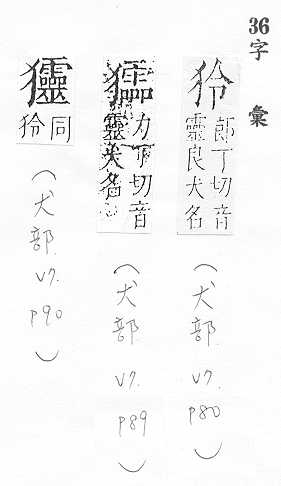 36字彙
狑
郎丁切音
靈良犬名
(犬部 V7. P80)
力丁切音
靈犬名
(犬部 V7. P89)
同
狑
(犬部 V7. P90)